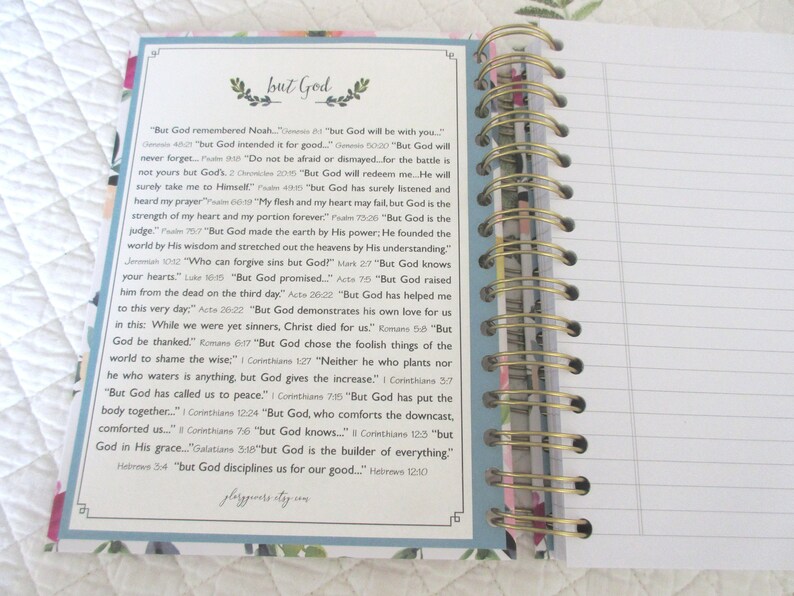 but God
"But God remembered Noah..."Genesis 8:1 "but God will be with you..."
Genesis 48:21 "but God intended it for good..." Genesis 50:20 "But God will
never forget... Psalm 9:18 "Do not be afraid or dismayed...for the battle is
not yours but God's. 2 Chronicles 20:15 "But God will redeem me...He will
surely take me to Himself." Psalm 49:15 "but God has surely listened and
heard my prayer"Psalm 66:19 "My flesh and my heart may fail, but God is the
strength of my heart and my portion forever." Psalm 73:26 "But God is the
judge." Psalm 75:7 "But God made the earth by His power; He founded the
world by His wisdom and stretched out the heavens by His understanding."
Jeremiah 10:12 "Who can forgive sins but God?" Mark 2:7 "But God knows
your hearts." Luke 16:15 "But God promised..." Acts 7:5 "But God raised
him from the dead on the third day." Acts 26:22 "But God has helped me
to this very day;" Acts 26:22 "But God demonstrates his own love for us
in this: While we were yet sinners, Christ died for us." Romans 5:8 "But
God be thanked." Romans 6:17 "But God chose the foolish things of the
world to shame the wise;" I Corinthians 1:27 "Neither he who plants nor
he who waters is anything, but God gives the increase." I Corinthians 3:7
"But God has called us to peace." I Corinthians 7:15 "But God has put the
body together..." I Corinthians 12:24 "But God, who comforts the downcast,
comforted us..." II Corinthians 7:6 "but God knows..." II Corinthians 12:3 "but
God in His grace..."Galatians 3:18"but God is the builder of everything."
Hebrews 3:4 "but God disciplines us for our good..." Hebrews 12:10
glorygivers.etsy.com